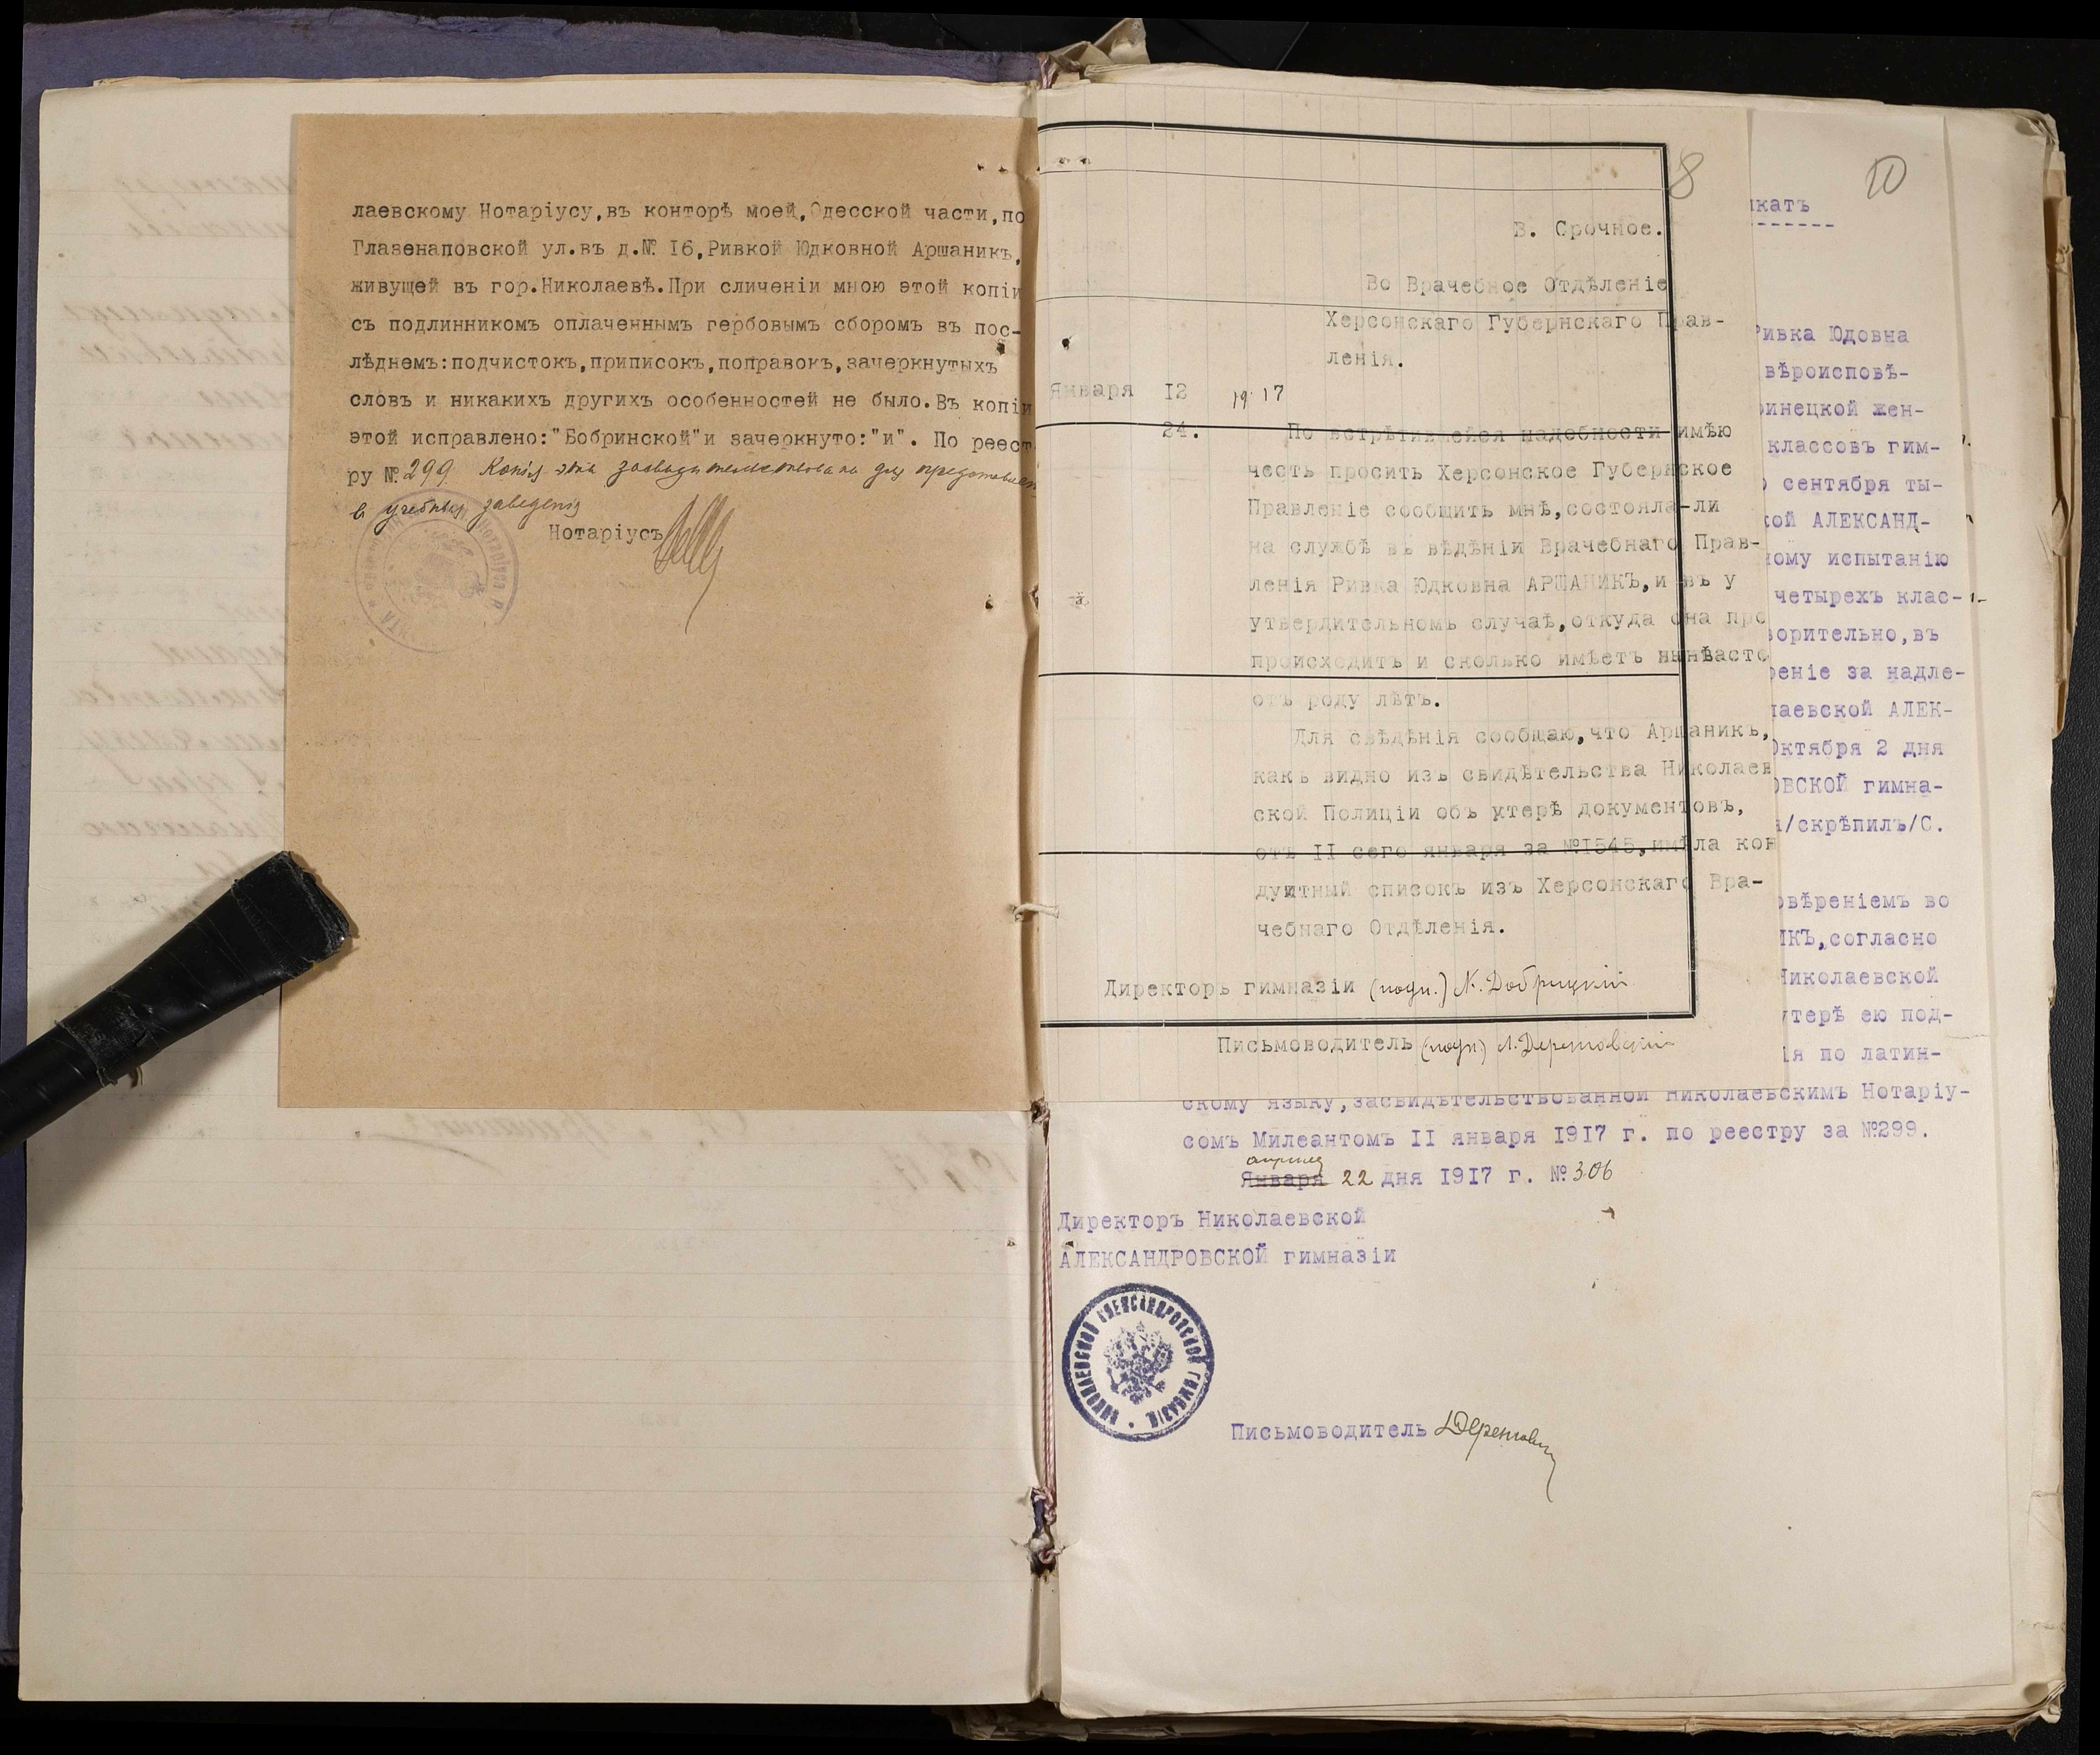 лаевскому Нотаріусу,въ конторѣ моей,Одесской части,по
Глазенаповской ул.въ д.№ 16,Ривкой Юдковной Аршаникъ,
живущей въ гор.Николаевѣ.При сличеніи мною этой копіи
съ подлинникомъ оплаченнымъ гербовымъ сборомъ въ пос-
лѣднемъ:подчистокъ,приписокъ,поправокъ,зачеркнутыхъ
словъ и никакихъ другихъ особенностей не было.Въ копіи
этой исправлено:"Бобринской"и зачеркнуто:"и". По реест
ру № 299. Копія эта засвидетельствована для представлен
в учебныя заведенія
Нотаріусъ
8
В. Срочное.
Во Врачебное Отдѣленіе
Херсонскаго Губернскаго Прав-
ленія.
Января 12 1917
24.
По встрѣтившейся надобности имѣю
честь просить Херсонское Губернское
Правленіе сообщить мнѣ,состояла-ли
на службѣ въ вѣдѣніи Врачебнаго Прав-
ленія Ривка Юдковна АРШАНИКЪ,и въ у
утвердительномъ случаѣ,откуда она про
происходитъ и сколько имѣетъ
отъ роду лѣтъ.
Для свѣдѣнія сообщаю,что Аршаникъ,
какъ видно изъ свидѣтельства Николаев
ской Полиціи объ утерѣ документовъ,
отъ II сего января за №1545,имѣла кон
дуитный списокъ изъ Херсонскаго Вра-
чебнаго Отдѣленія.
Директоръ гимназіи (подп.) Н. Добрицкій
Письмоводитель (подп.)
10
икатъ
Ривка Юдовна
вѣроисповѣ-
ринецкой жен-
классовъ гим-
о сентября ты-
кой АЛЕКСАНД-
ному испытанію
четырехъ клас-
ворительно,въ
реніе за надле-
лаевской АЛЕК-
Октября 2 дня
ОВСКОЙ гимна-
/скрѣпилъ/С.
овѣреніемъ во
ИКЪ,согласно
Николаевской
утерѣ ею под-
ія по латин-
скому языку,засвидѣтельствованной Николаевскимъ Нотаріу-
сомъ Милеантомъ II января 1917 г. по реестру за №299.
апреля
Января 22 дня 1917 г. № 306
Директоръ Николаевской
АЛЕКСАНДРОВСКОЙ гимназіи
НИКОЛАЕВСКОЙ АЛЕКСАНДРОВСКОЙ ГИМНАЗІИ
Письмоводитель